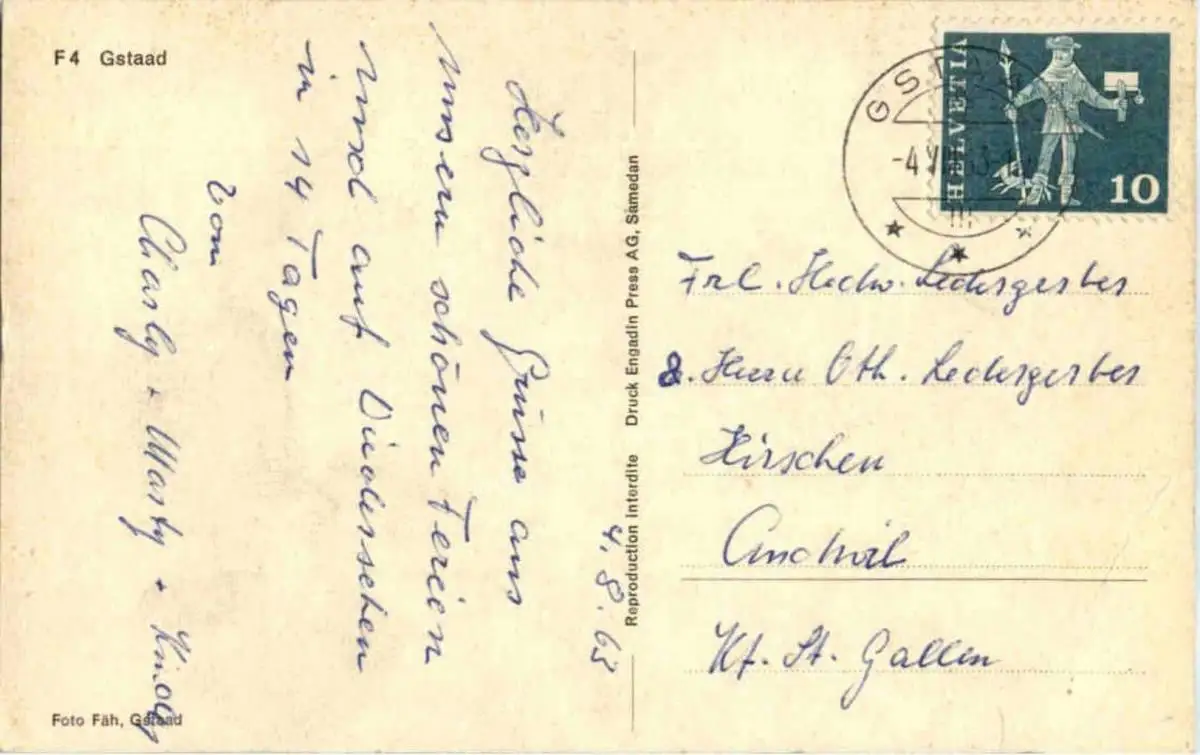 F4 Gstaad
4. 8. 63
Herzliche Grüsse aus
unsern schönen Ferien
und auf Widersehen
in 14 Tagen
von
Charly + Marty + Kinder
Foto Fäh, Gstaad
Reproduction interdite Druck Engadin Press AG, Samedan
GSTAAD
-4.VIII.63-
HELVETIA
10
Frl. Hedw. Ledergerber
&. Herrn Oth. Ledergerber
Hirschen
Andwil
Kt. St. Gallen